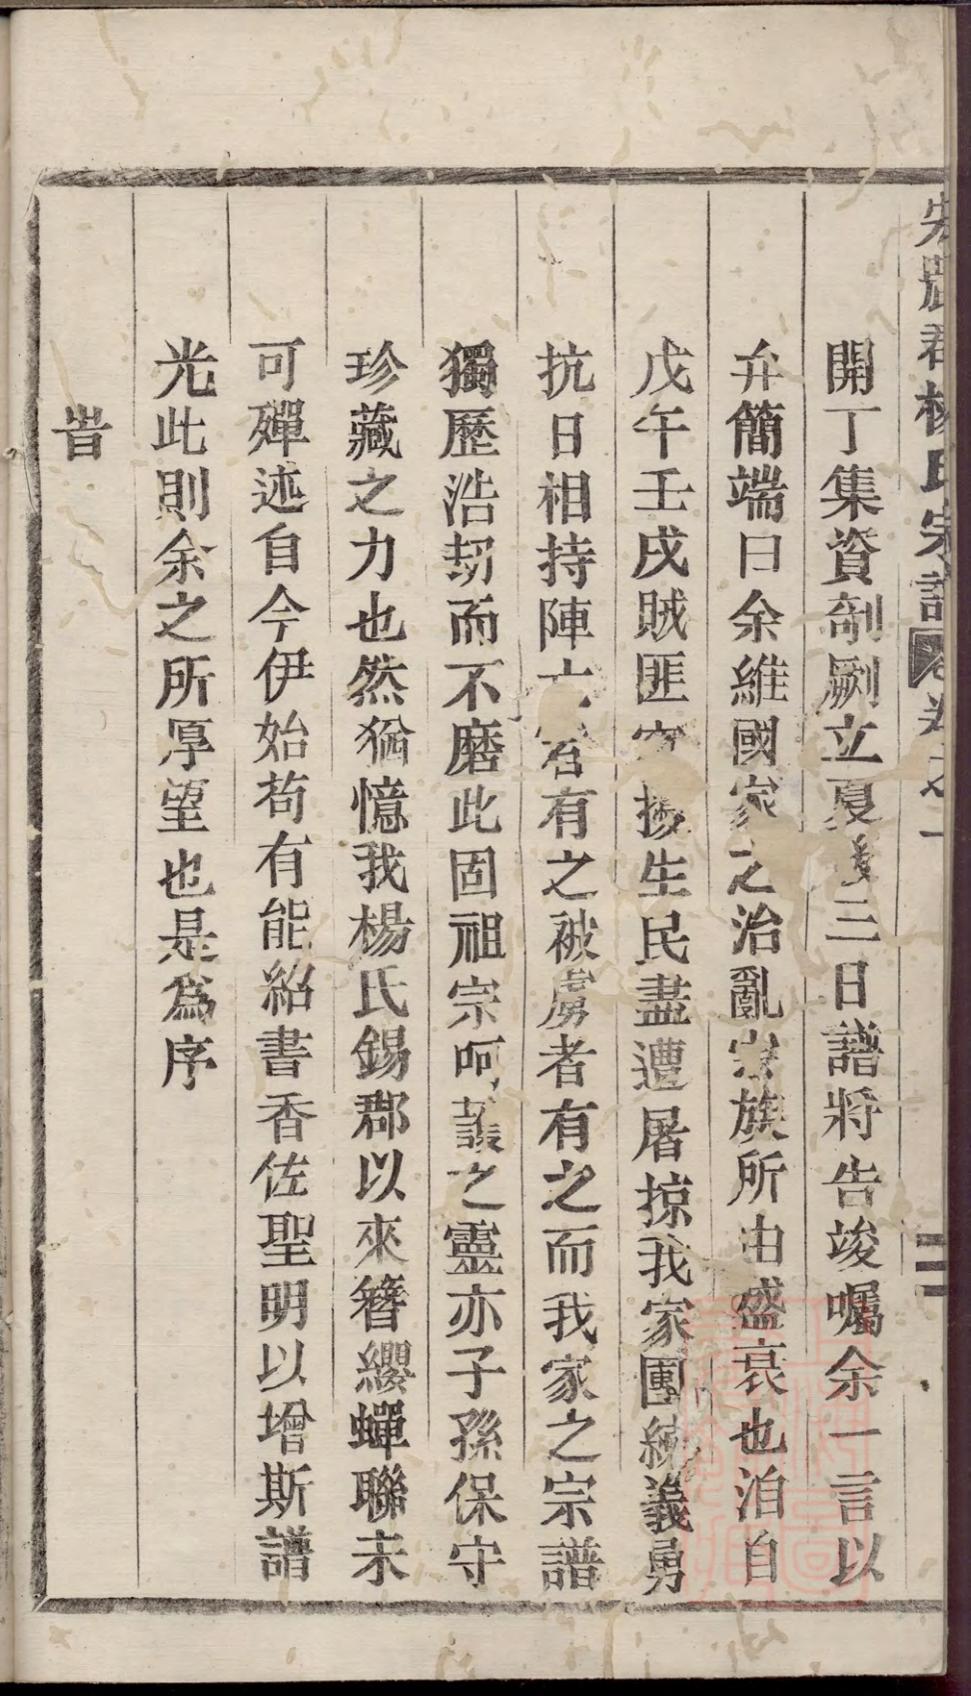 宏農君楊氏宗譜 卷之一
開丁集資剞劂立夏後三日譜將告竣囑余一言以
弁簡端曰余維國家之治亂宗族所由盛衰也洎自
戊午壬戌賊匪擾生民盡遭屠掠我家團練義勇
抗日相持陣亡者有之被虜者有之而我家之宗譜
獨歷浩刧而不磨此固祖宗呵護之靈亦子孫保守
珍藏之力也然猶憶我楊氏錫郡以來簪纓蟬聯未
可殫述自今伊始苟有能紹書香佐聖明以增斯譜
光此則余之所厚望也是為序
旹